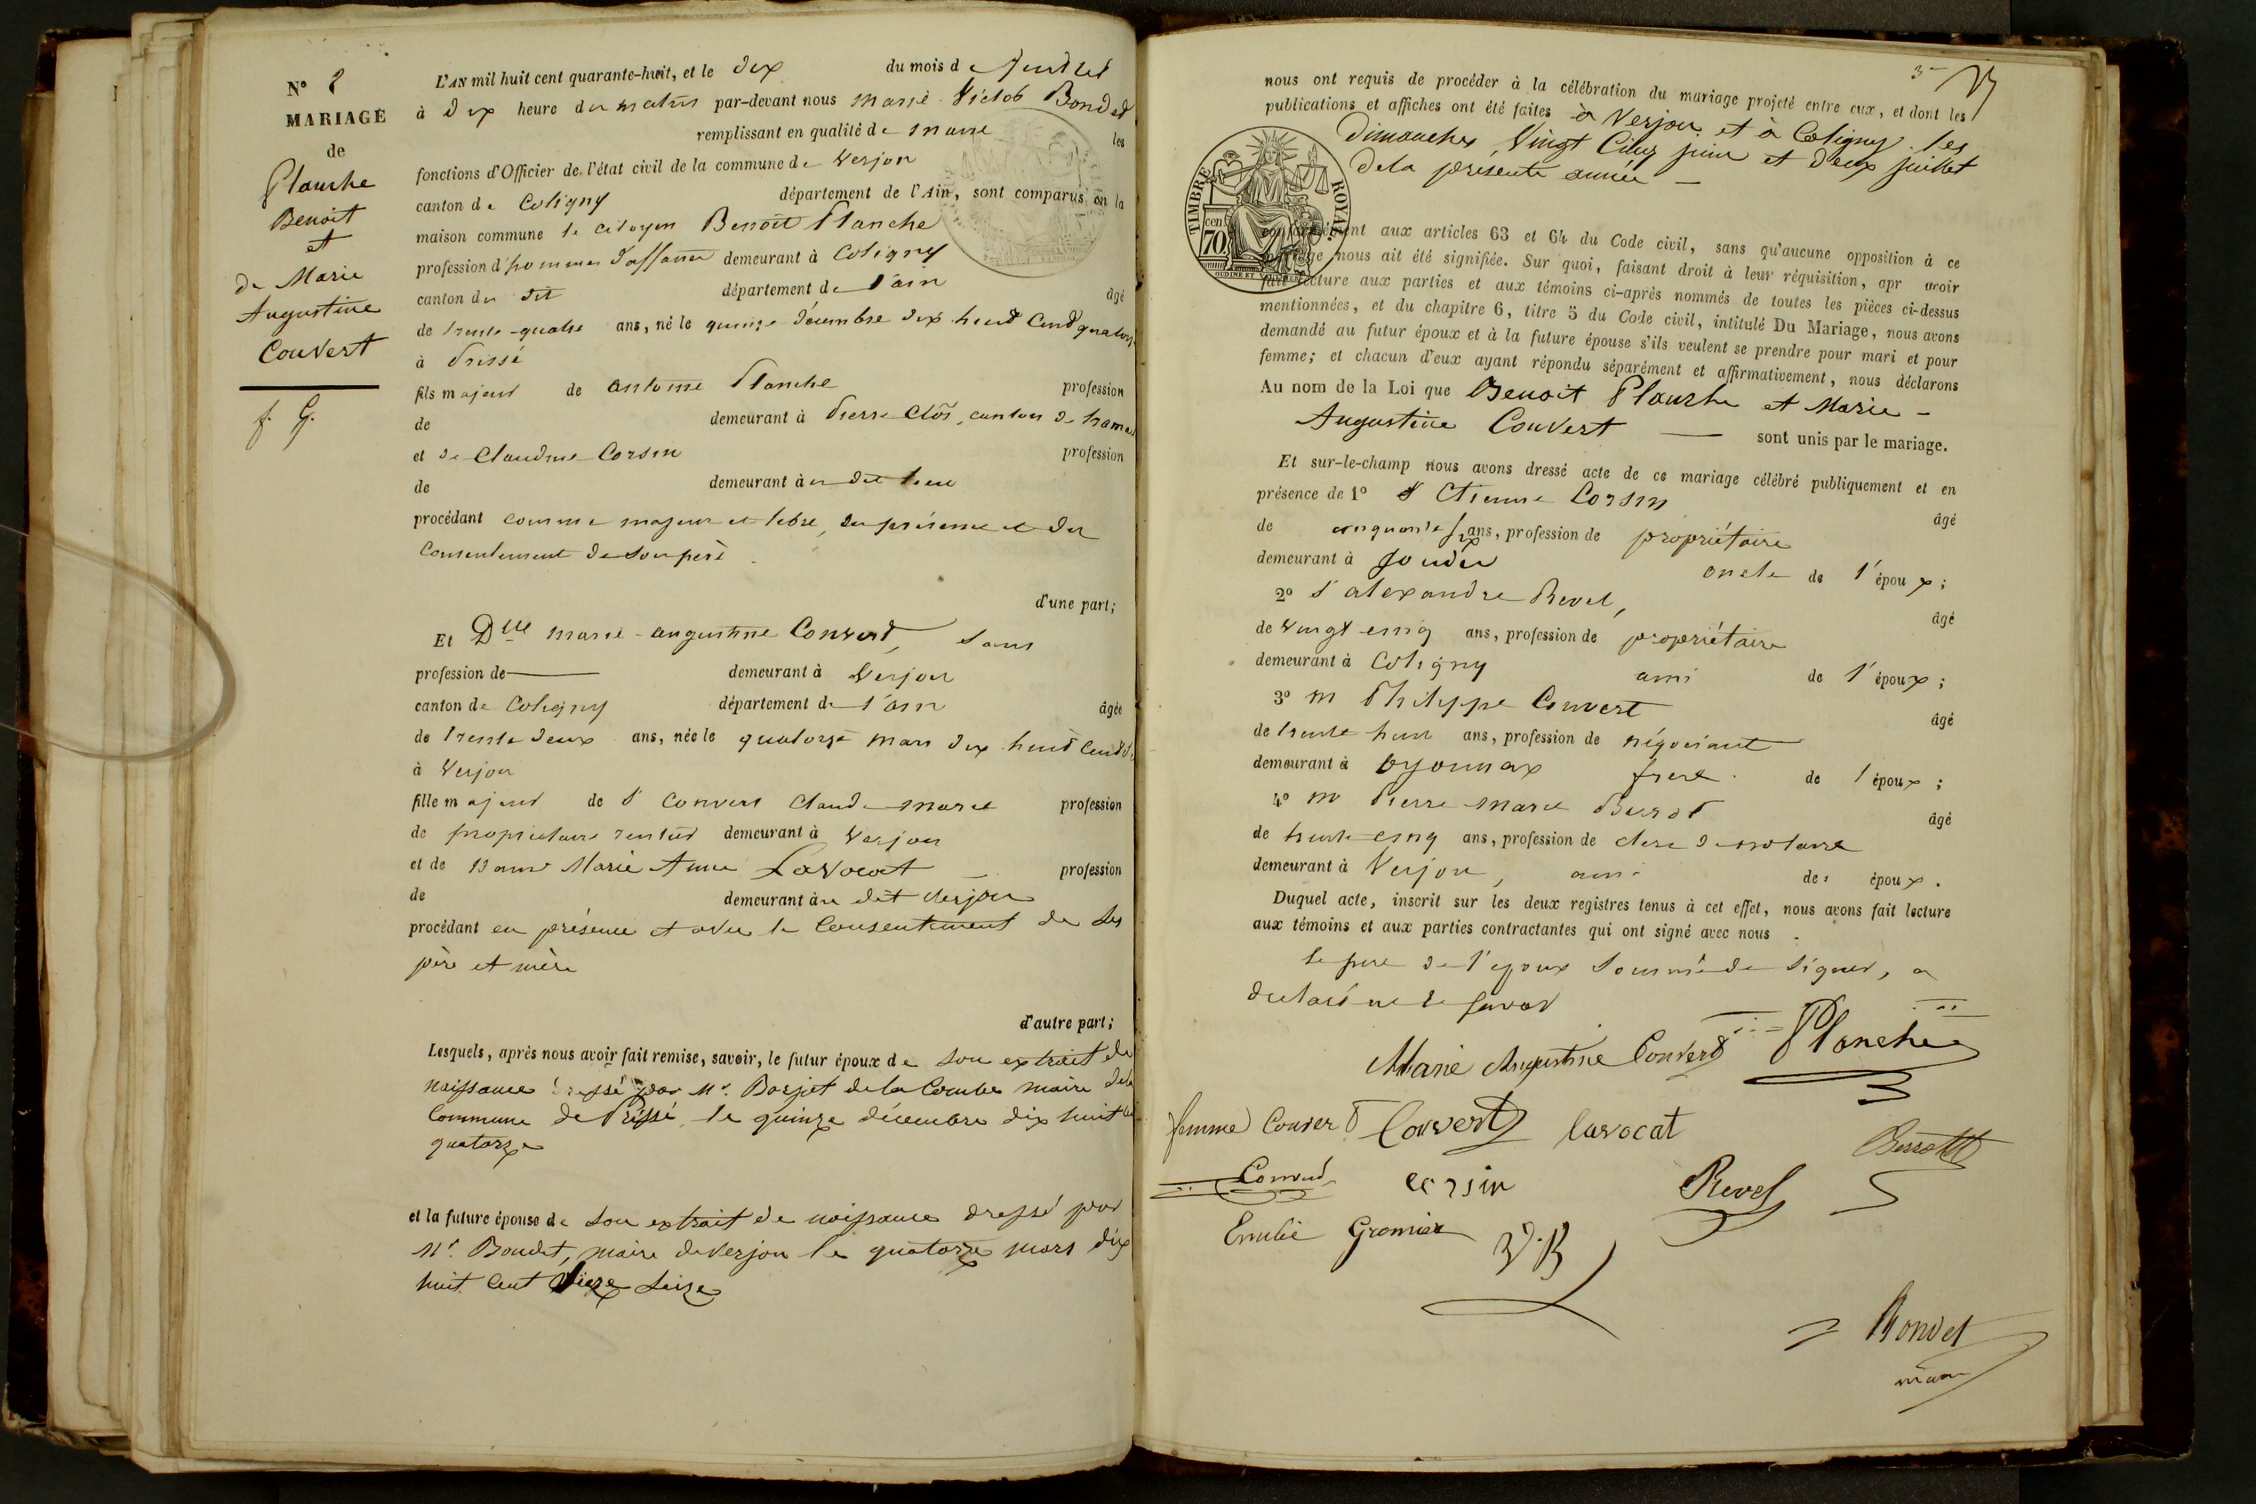 N° 2
MARIAGE
de
Planche
Benoit
et
de Marie
Augustine
Convert
f. G.
L'AN mil huit cent quarante-huit, et le dix du mois de Juillet
à dix heure du matin par-devant nous Marie Victor Bondet
remplissant en qualité de maire les
fonctions d'Officier de l'état civil de la commune de Verjon
canton de Coligny département de l'Ain, sont comparus en la
maison commune le citoyen Benoît Planche
profession d'hommes d'affaires demeurant à Coligny
canton du dit département de l'ain âgé
de trente-quatre ans, né le quinze décembre dix huit cent quatorze
à Prissé
fils majeur de antoine Planche profession
de demeurant à Pierre Clos, canton de tramayes
et de Claudine Corsin profession
de demeurant au dit lieu
procédant comme majeur et libre, en présence et du
Consentement de son père
d'une part;
Et Dlle marie-augustine Convert, sans
profession de demeurant à Verjon
canton de Coligny département de l'ain âgée
de trente deux ans, née le quatorze mars dix huit cent
à Verjon
fille majeur de S Convert Claude marie profession
de propriétaire rentier demeurant à Verjon
et de dame Marie Anne Lavocat profession
de demeurant au dit Verjon
procédant en présence et avec le Consentement de ses
père et mère
d'autre part;
Lesquels, après nous avoir fait remise, savoir, le futur époux de son extrait de
naissance dressé par Mr. Borjot de la Combe maire de la
Commune de Prissé, le quinze décembre dix huit cent
quatorze
et la future épouse de son extrait de naissance dressé par
Mr. Bondet, maire de Verjon le quatorze mars dix
huit cent seize
3
nous ont requis de procéder à la célébration du mariage projeté entre eux, et dont les
publications et affiches ont été faites à Verjon et à Coligny les
Dimanches Vingt Cinq juin et deux juillet
de la présente année
TIMBRE ROYAL
cen
70
conformément aux articles 63 et 64 du Code civil, sans qu'aucune opposition à ce
mariage nous ait été signifiée. Sur quoi, faisant droit à leur réquisition, apr avoir
fait lecture aux parties et aux témoins ci-après nommés de toutes les pièces ci-dessus
mentionnées, et du chapitre 6, titre 5 du Code civil, intitulé Du Mariage, nous avons
demandé au futur époux et à la future épouse s'ils veulent se prendre pour mari et pour
femme; et chacun d'eux ayant répondu séparément et affirmativement, nous déclarons
Au nom de la Loi que Benoit Planche et Marie-
Augustine Convert sont unis par le mariage.
Et sur-le-champ nous avons dressé acte de ce mariage célébré publiquement et en
présence de 1° S Etienne Corsin
âgé
de cinquante six ans, profession de propriétaire
demeurant à oncle de l'époux;
2° S alexandre Revel,
âgé
de vingt cinq ans, profession de propriétaire
demeurant à Coligny ami de l'époux;
3° m Philippe Convert
âgé
de trente huit ans, profession de négociant
demeurant à oyonnax frere de l'époux;
4° m Pierre marie
âgé
de trente cinq ans, profession de clerc de notaire
demeurant à Verjon, ami des époux.
Duquel acte, inscrit sur les deux registres tenus à cet effet, nous avons fait lecture
aux témoins et aux parties contractantes qui ont signé avec nous
le pere de l'époux sommé de signer, a
declaré ne le savoir
Marie Augustine Convert Planche
femme Convert Convert Lavocat
Convert corsin Revel
Emilie Gromier V.B
Bondet
maire